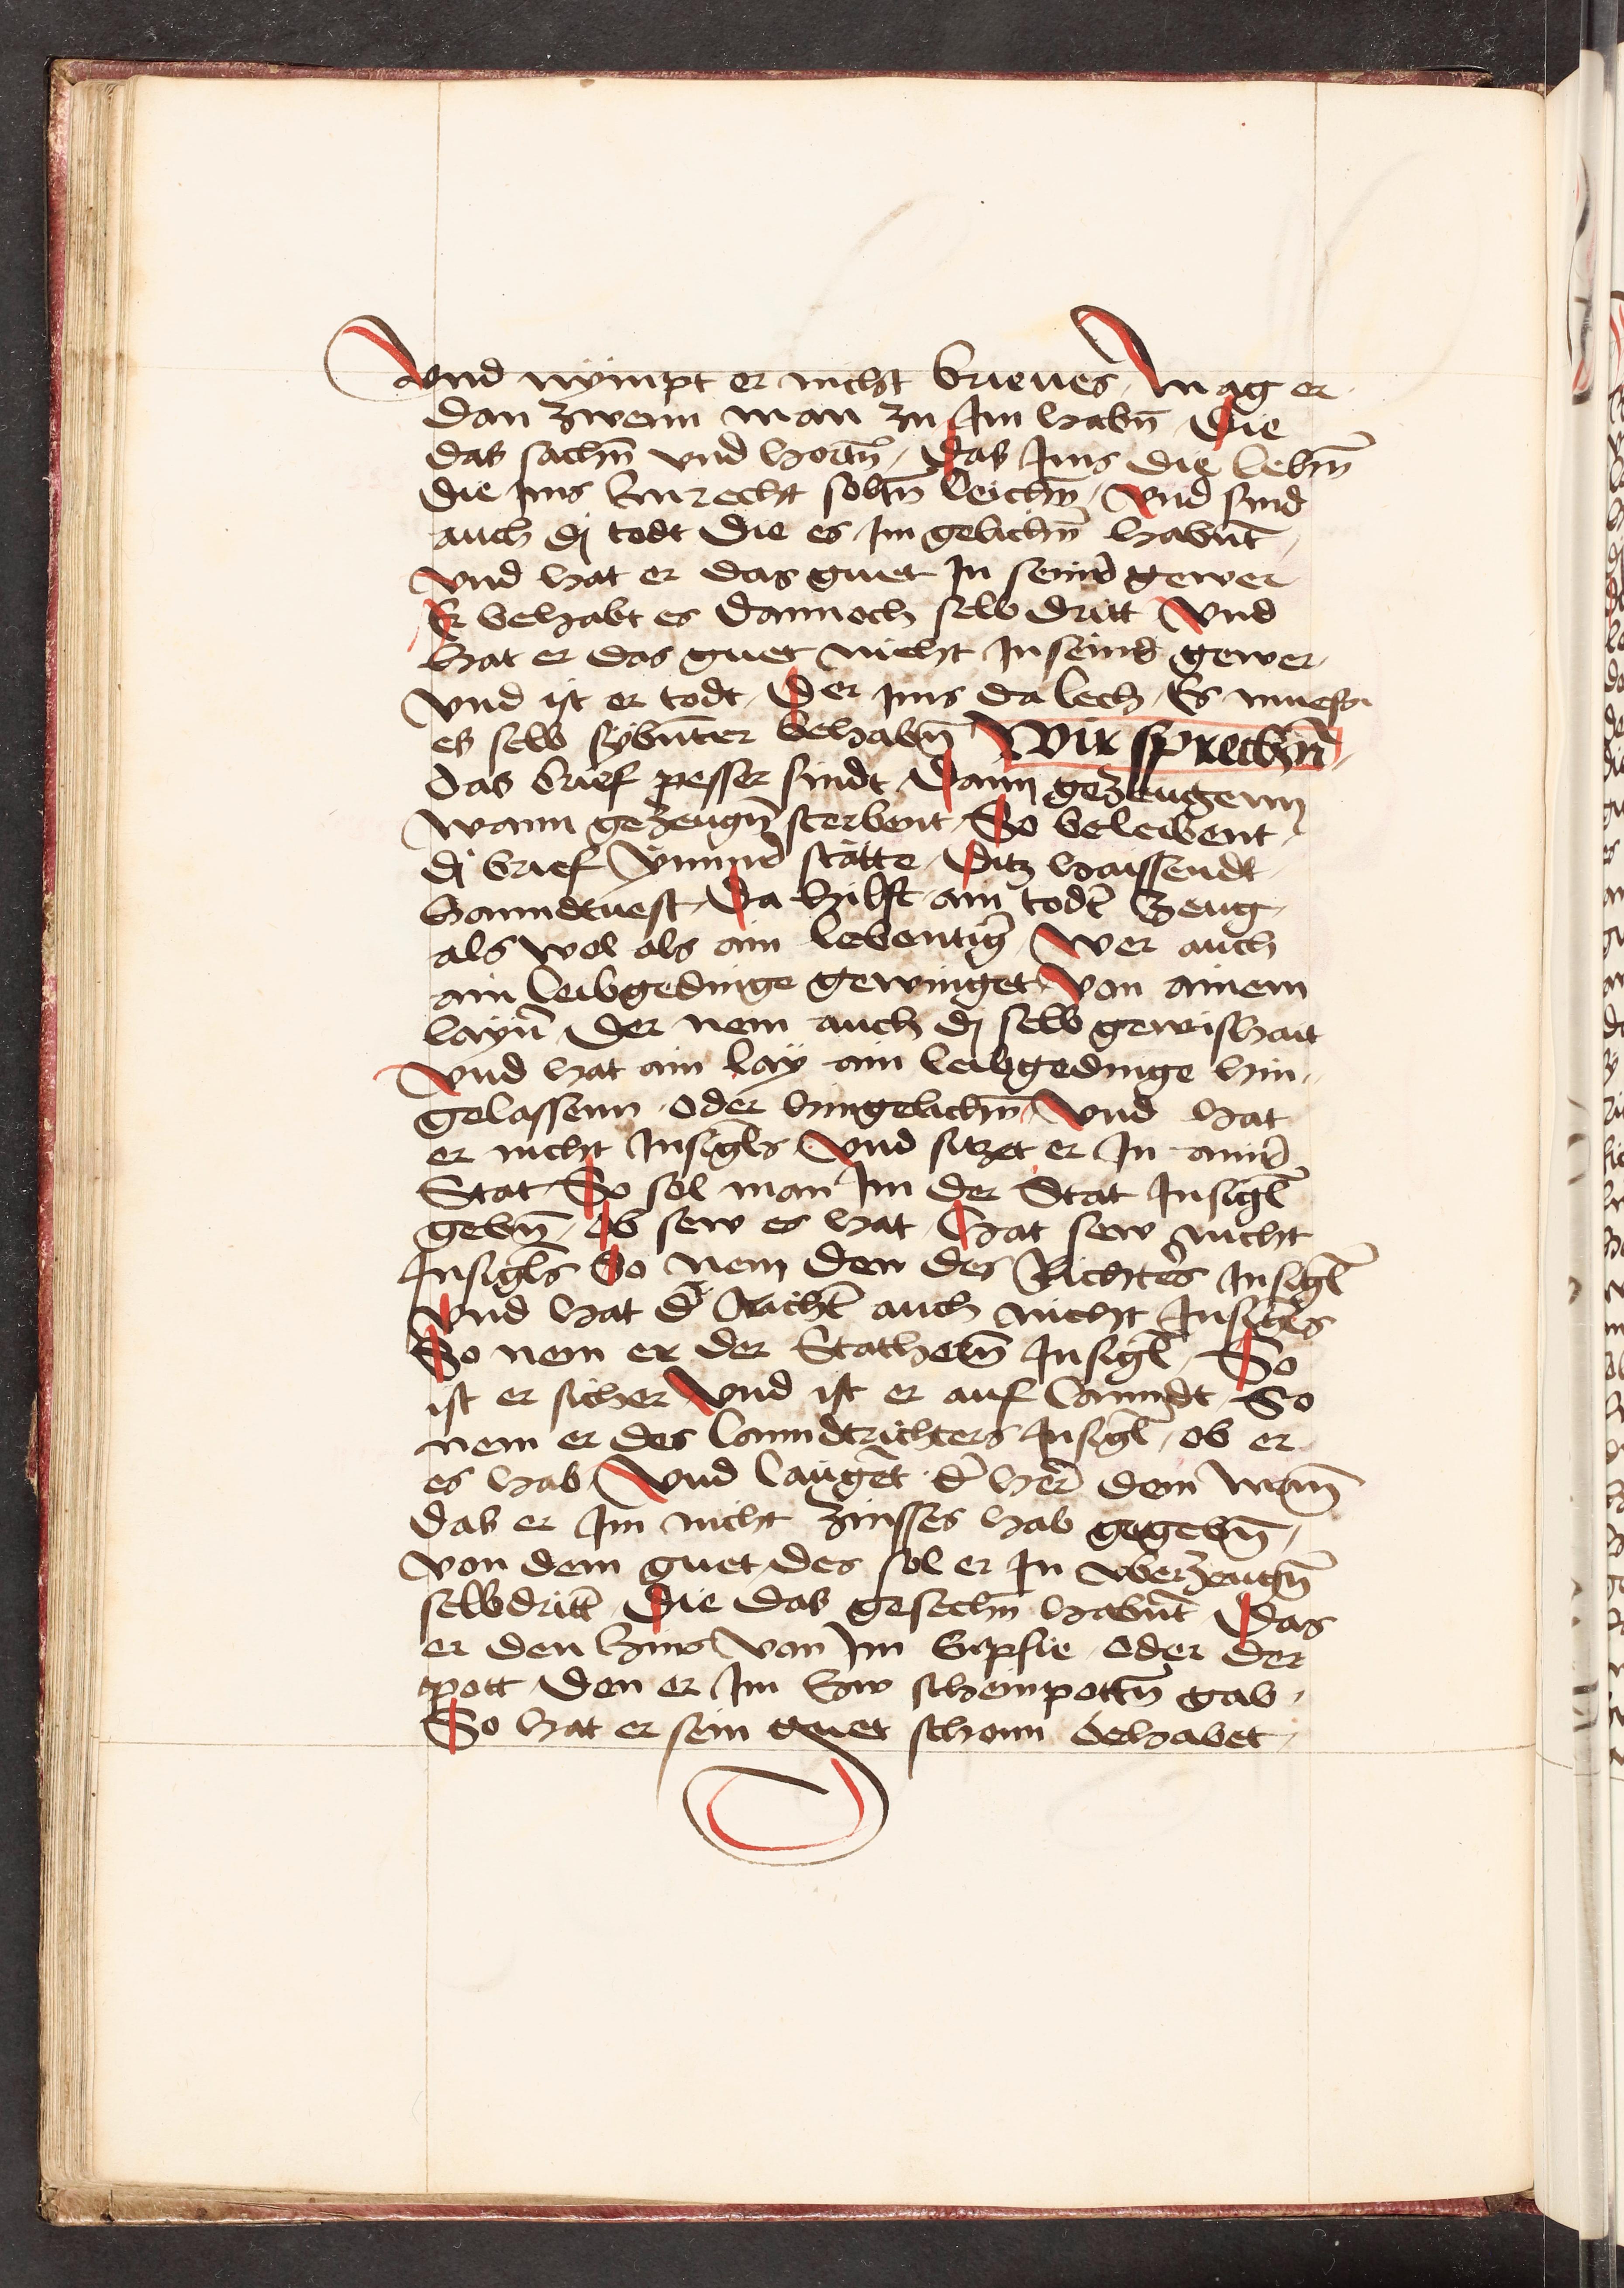 Vnd nÿmpt er nicht brieues, mag er
dan zwenn man zu Im habñ Die
das sachñ vnd hortñ, Das Ims die lebñ
die Ims zu recht soltñ leichñ, Vnd sind
auch dj todt die es Im gelichñ habnt,
vnd hat er das guet In seinr̃ gewer
Er behabt es dannoch selb dritt Vnd
hat er das guet nicht In seinr̃ gewer,
Vnd ist er todt, Der Ims da lech, Er mueß
es selb sybenter behabñ Wir sprechñ,
das brief pesser sindt, Dann gezeugenn
wann gezeugñ sterbent, So beleibent,
dj brief ÿmmr̃ stätte, Ditz haissendt
hanndtuest, Da hilft ain todt̃ zeug,
als wol als ain lebentig̃, Wer auch
ain leibgedinge gewinget, Von ainem
layñ, Der nem auch dj selb gewishait
Vnd hat ain laÿ ain leibgedinge hin,
gelassenn oder hingelichñ, Vnd hat
er nicht Insigls̃ Vnd sitzet er In ainr̃
Stat, So sol man Im der Stat Insigl̃
gebñ, Ob sew es hat, Hat sew nicht
Insigls̃ So nem den des Richters̃ Insigl̃
Vnd hat d̃ Richt̃ auch nicht Insigls̃
So nem er der Stathern̄ Insigl̃, So
ist er sicher Vnd ist er auf lanndt, So
nem er des lanndtrichters Insigl̃, ob er
es hab, Vnd lauget̃ d̃ her̃ dem man̄
das er Im nicht zinsses hab gegebñ,
von dem guet, des sol er In vberzeugñ
selbdritt̃ Die das gesechñ habnt̃ Das
er den zins von Im Enpfie, oder der
pott, Den er Im zw scheinpottñ gab,
So hat er sein guet schonn behabet,